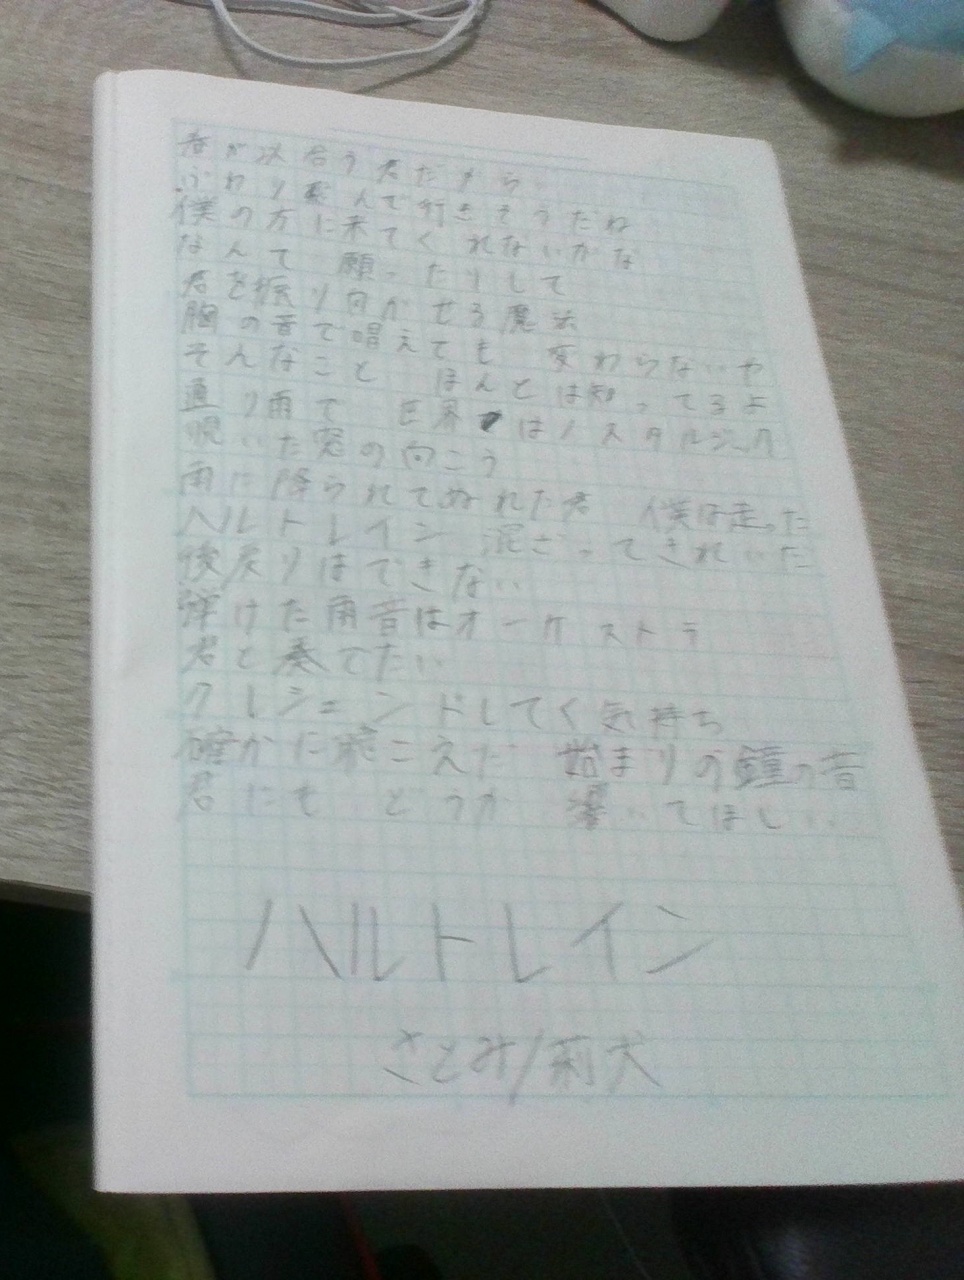 春が似合う君だから
ふわり飛んで行きそうだね
僕の方に来てくれないかな
なんて 願ったりして
君を振り向かせる魔法
胸の音で唱えても 変わらないや
そんなこと ほんとは知ってるよ
通り雨で 世界はノスタルジック
覗いた窓の向こう
雨に降られてぬれた君 僕は走った
ハルトレイン 混ざってきれいだ
後戻りはできない
弾けた雨音はオーケストラ
君と奏でたい
クレシェンドしてく気持ち
確かに聴こえた 始まりの鐘の音
君にも どうか 響いてほしい
ハルトレイン
さとみ/莉犬